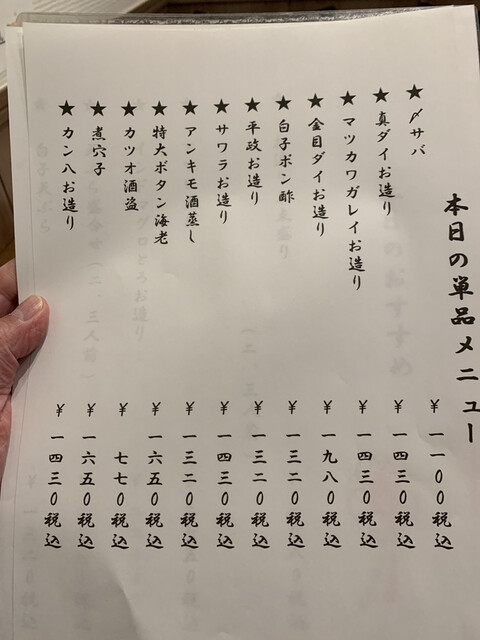 本日の単品メニュー
★〆サバ ¥一一00税込
★真ダイお造り ¥一四三0税込
★マツカワガレイお造り ¥一四三0税込
★金目ダイお造り ¥一九八0税込
★白子ポン酢 ¥一三二0税込
★平政お造り ¥一三二0税込
★サワラお造り ¥一四三0税込
★アンキモ酒蒸し ¥一三二0税込
★特大ボタン海老 ¥一六五0税込
★カツオ酒盗 ¥七七0税込
★煮穴子 ¥一六五0税込
★カン八お造り ¥一四三0税込